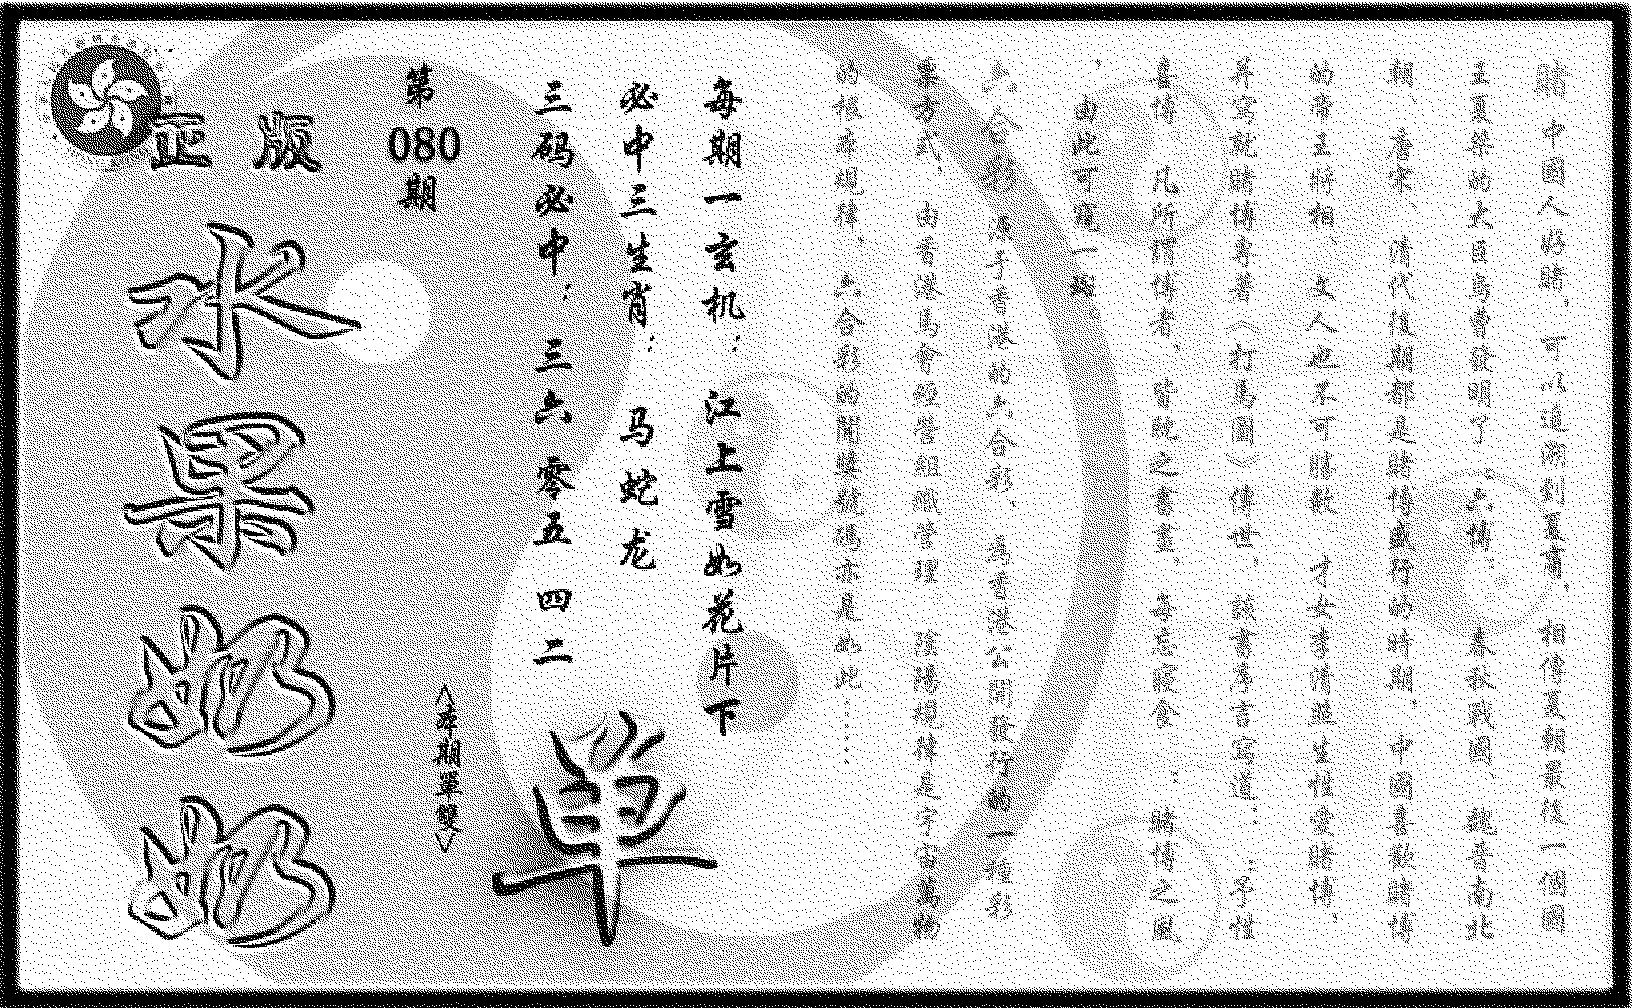 賭 中國人好賭、可以追溯到夏商、相傳夏朝最後一個國
王夏桀的大臣烏曹發明了〝六博〞 春秋戰國、魏晉南北
朝 唐宋、清代後期都是賭博盛行的時期、中國喜 賭博
的帝王將相 文人也不可勝數 才女李清照生性愛賭博,
并寫就賭博專著《打馬圖》傳世、該書序言寫道:〝予性
喜博 凡所謂博者、皆耽之 、每忘寢食〞: 賭博之風
,由此可窺一斑
六合彩 源于香港的六合彩、爲香港公開發行的一種彩
票方式、由香港馬會經營組織管理 陰陽規律是宇宙萬物
的根本規律、六合彩的開獎號碼亦是如此……
每期一玄机:江上雪如花片下
必中三生肖:马蛇龙
三码必中:三六 零五 四二
单
《本期單雙》
第080期
正版
水果奶奶